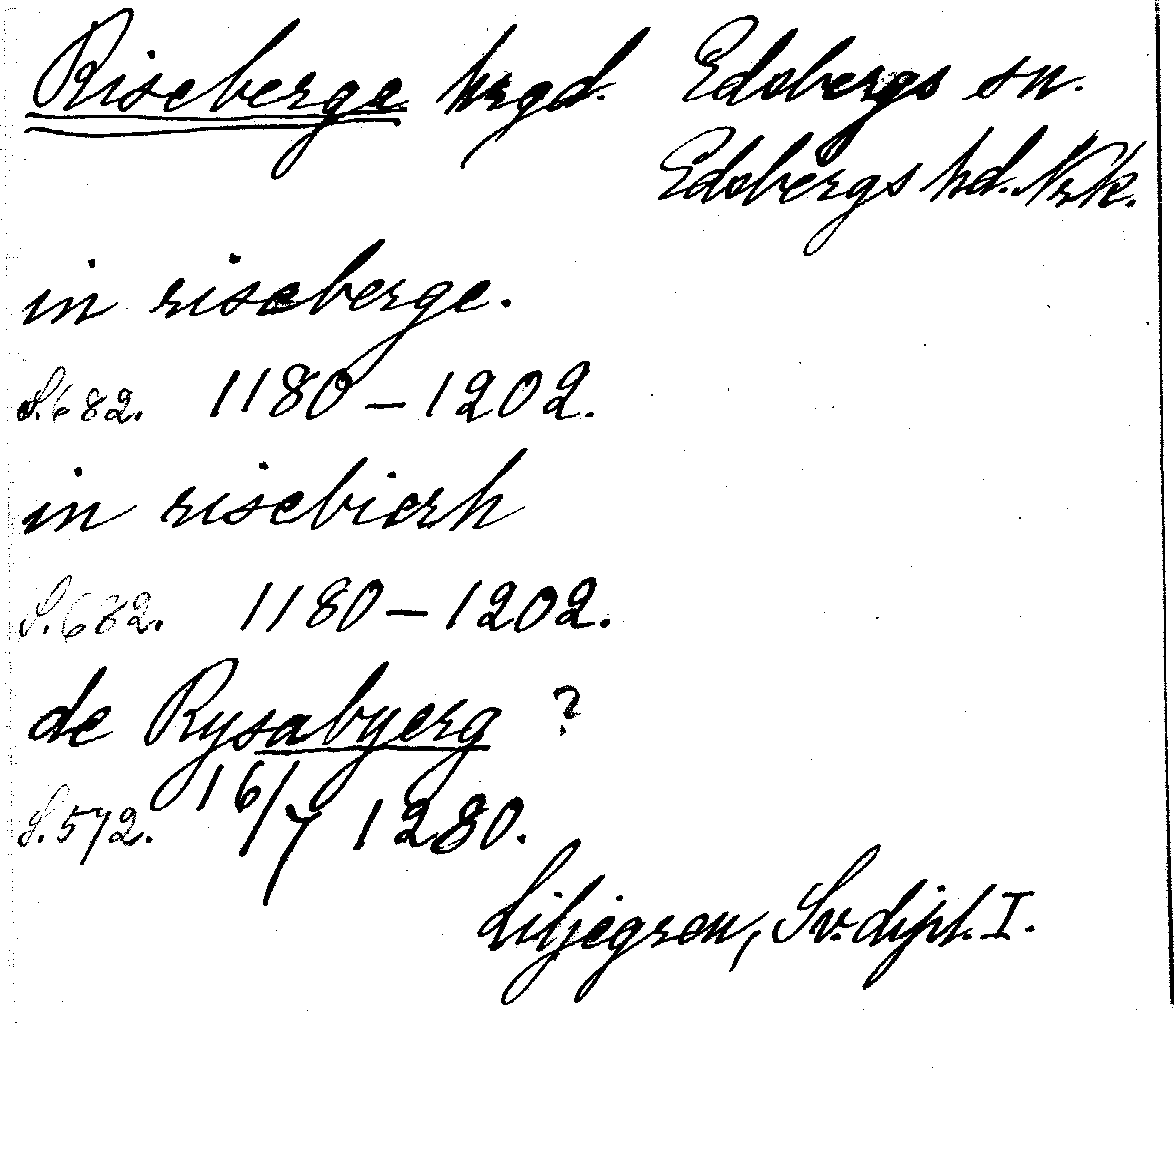 Riseberga hrgd. Edsbergs sn.
Edsbergs hd. Nrk.
in riseberge.
S. 682. 1180–1202.
in risebierh
S. 682. 1180–1202.
de Rysabyerg ?
S. 572. 16/7 1280.
Liljegren, Sv. dipl. I.